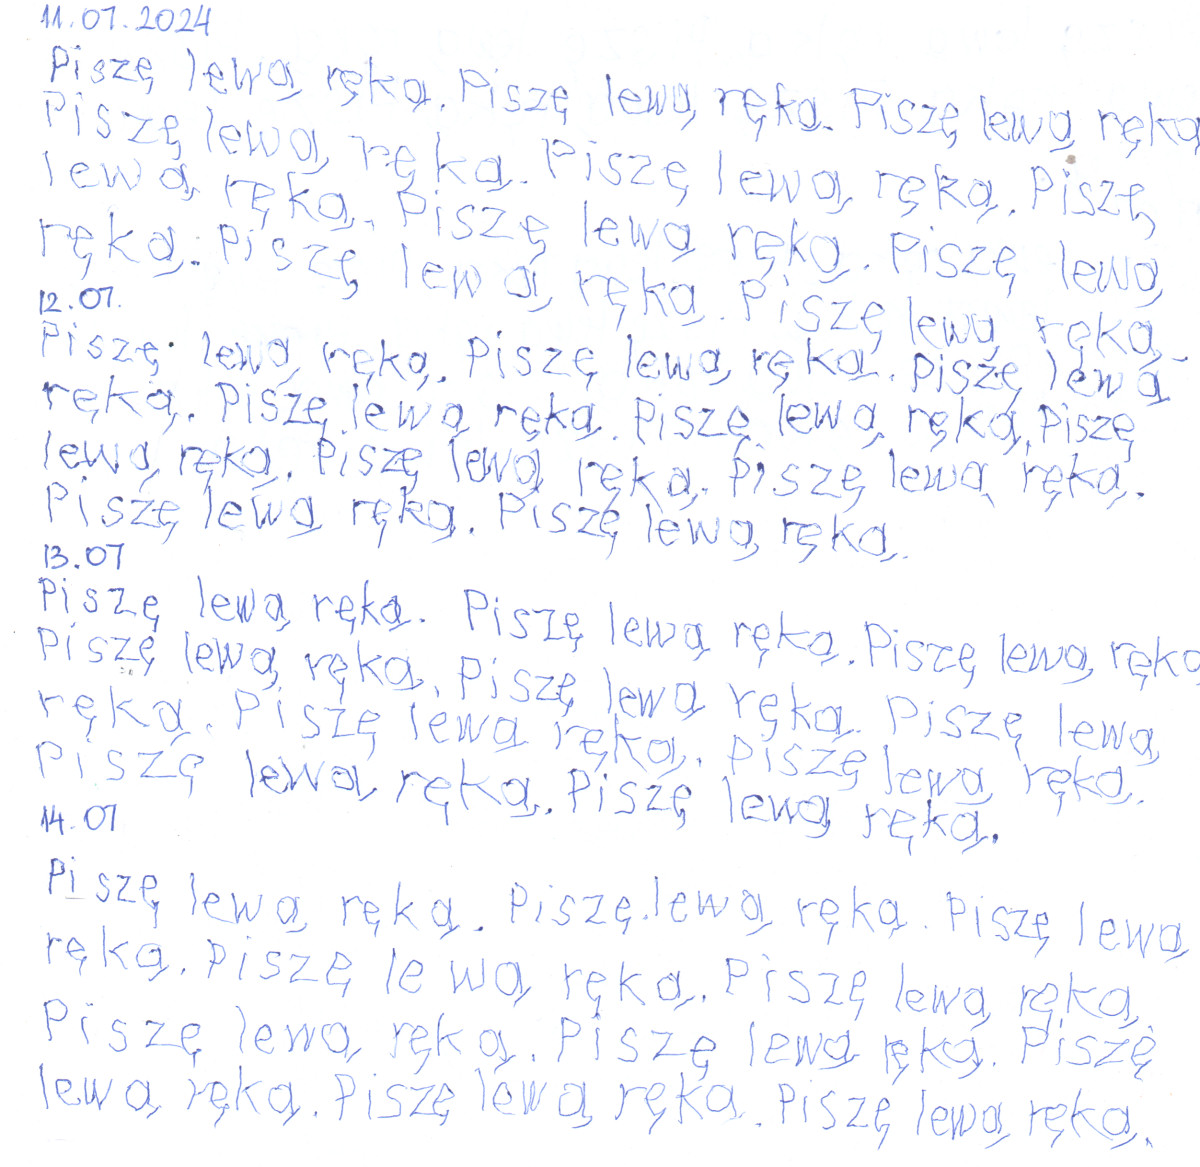 11.07.2024
Piszę lewą ręką. Piszę lewą ręką. Piszę lewą ręką
Piszę lewą ręką. Piszę lewą ręką. Piszę
lewą ręką. Piszę lewą ręką. Piszę lewą
ręką. Piszę lewą ręką. Piszę lewą ręką.
12.07.
Piszę lewą ręką. Piszę lewą ręką. Piszę lewą
ręką. Piszę lewą ręką. Piszę lewą ręką. Piszę
lewą ręką. Piszę lewą ręką. Piszę lewą ręką.
Piszę lewą ręką. Piszę lewą ręką.
13.07
Piszę lewą ręką. Piszę lewą ręką. Piszę lewą ręką
Piszę lewą ręką. Piszę lewą ręką. Piszę lewą
ręką. Piszę lewą ręką. Piszę lewą ręką.
Piszę lewą ręką. Piszę lewą ręką.
14.07
Piszę lewą ręką. Piszę lewą ręką. Piszę lewą
ręką. Piszę lewą ręką. Piszę lewą ręką
Piszę lewą ręką. Piszę lewą ręką. Piszę
lewą ręką. Piszę lewą ręką. Piszę lewą ręką.